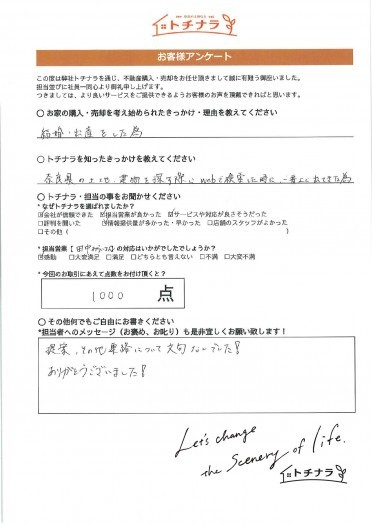 トチナラ
お客様アンケート
この度は弊社トチナラを通じ、不動産購入・売却をお任せ頂きまして誠に有難う御座いました。
担当並びに社員一同心より御礼申し上げます。
つきましては、より良いサービスをご提供できるようお客様のお声を頂戴できればと思います。
〇 お家の購入・売却を考え始められたきっかけ・理由を教えてください
結婚・出産をした為
〇 トチナラを知ったきっかけを教えてください
奈良県の土地、建物を探す際にwebで検索した時に、一番上に出てきた為
〇 トチナラ・担当の事をお聞かせください
* なぜトチナラを選ばれましたか?
☑会社が信頼できた ☑担当営業が良かった ☑サービスや対応が良さそうだった
□評判を聞いた ☑情報提供量が多かった・早かった □店舗のスタッフがよかった
□その他 (
* 担当営業【 】の対応はいかがでしたでしょうか?
☑感動 □大変満足 □満足 □どちらとも言えない □不満 □大変不満
* 今回のお取引にあえて点数をお付け頂くと?
1000 点
〇 その他何でもご自由にお書きください
*担当者へのメッセージ(お褒め、お叱り)も是非宜しくお願い致します!
提案、その他連絡について文句なしでした!
ありがとうございました!
Let's change
the Scenery of life.
トチナラ